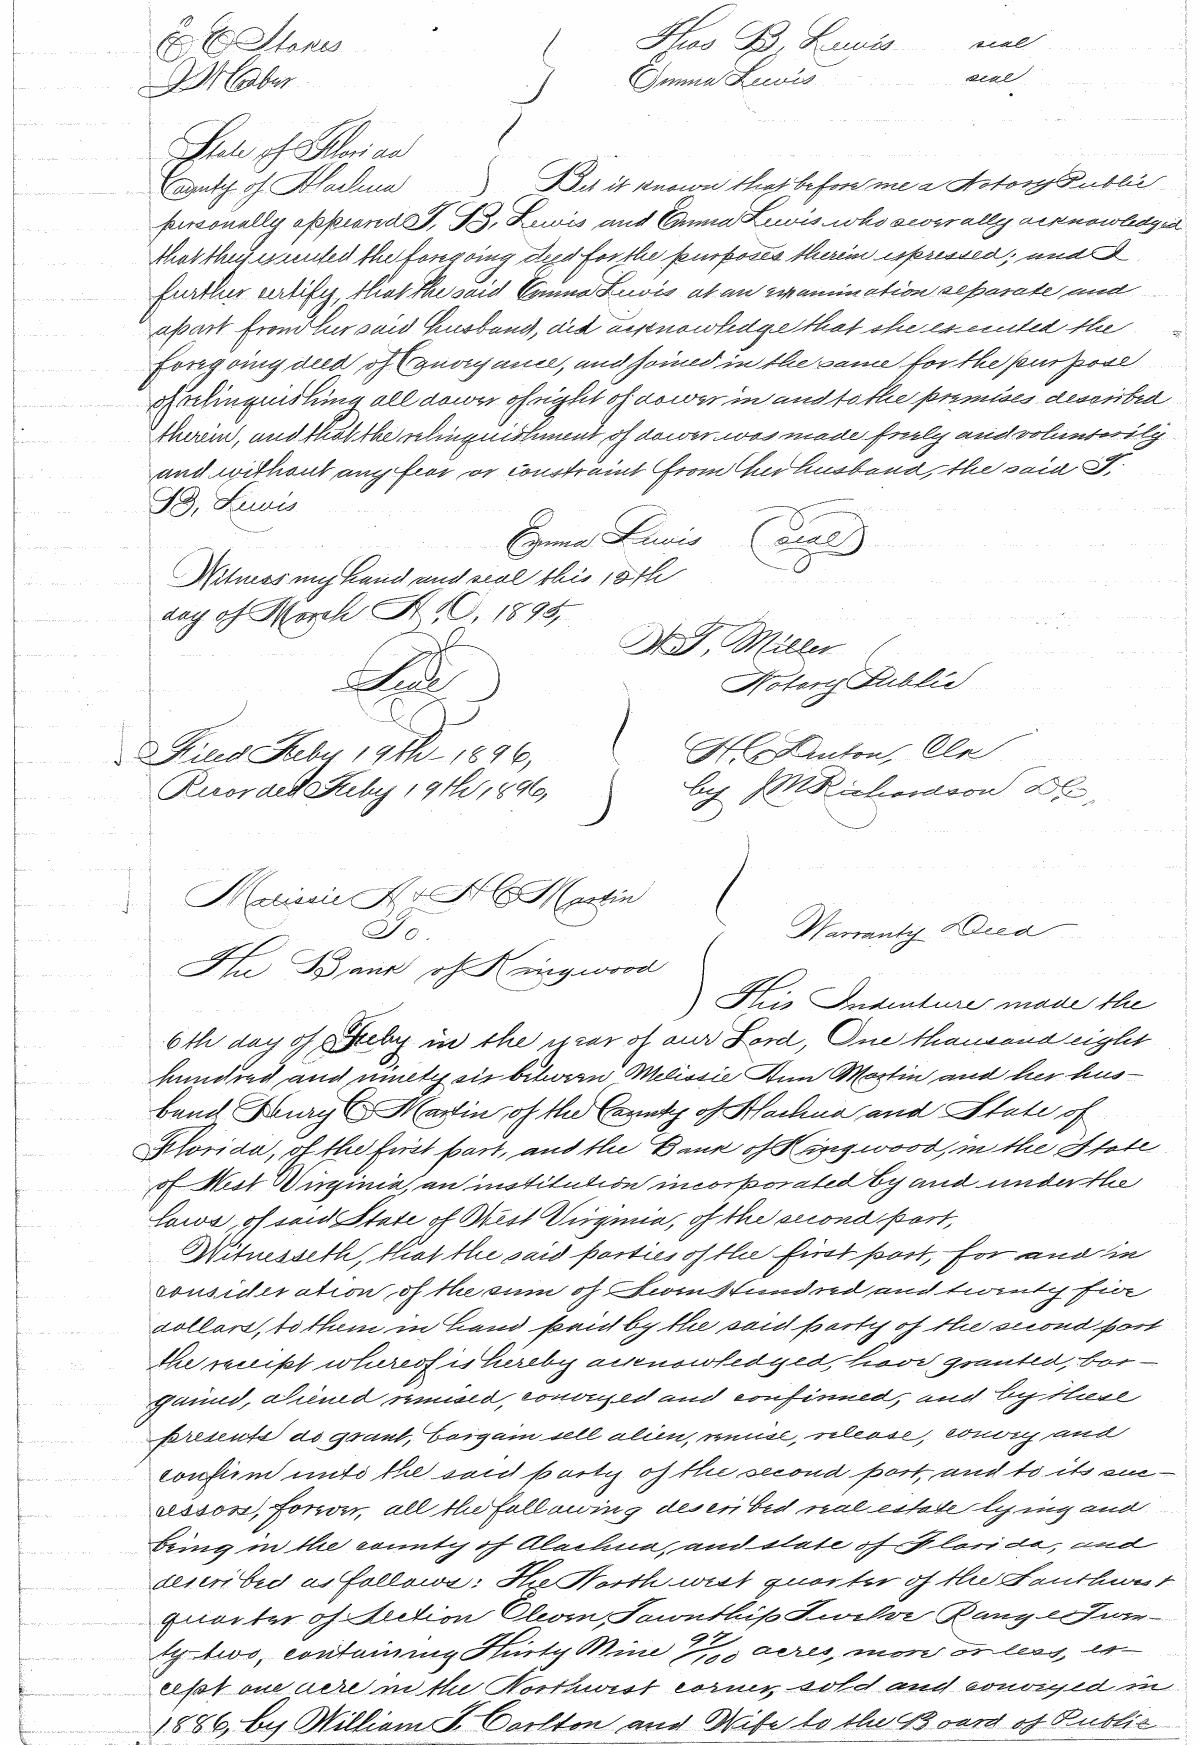 Thos B. Lewis seal
Emma Lewis seal
State of Florida
County of Alachua } Be it known that before me a Notory Public
personally appeared T. B. Lewis and Emma Lewis who severally acknowledged
that they executed the foregoing deed for the purposes therein expressed; and I
further certify, that the said Emma Lewis at an examination separate and
apart from her said husband, did acknowledge that she executed the
foregoing deed of Conveyance, and joined in the same for the purpose
of relinquishing all dower of right of dower in and to the premises described
therein, and that the relinquishment, of dower was made freely and voluntarily
and without any fear or constraint from her husband, the said T.
B, Lewis
Emma Lewis (seal)
Witness my hand and seal this
day of March A.D. 1895,
T, Miller
Seal
Notory Public
Filed Feby 19th 1896, H.C. Denton, Clk
Recorded Feby 19th 1896, by JM Richardson DC,
Melissie A & H C Martin
To.
The Bank of Kingwood
Warranty Deed
This Indenture made the
6th day of Feby in the year of our Lord, One thousand eight
hundred and ninety six between Melissie Ann Martin and her hus-
band Henry C Martin of the County of Alachua and State of
Florida, of the first part, and the Bank of Kingwood, in the State
of West Virginia, an institution incorporated by and under the
laws of said State of West Virginia, of the second part,
Witnesseth, that the said parties of the first part, for and in
consideration, of the sum of Seven Hundred and twenty five
dollars, to them in hand paid by the said party of the second part
the receipt whereof is hereby acknowledged, have granted, bar-
gained, aliened remised, conveyed and confirmed, and by these
presents do grant, bargain sell alien, remise, release, convey and
confirm unto the said party of the second part, and to its suc-
cessors, forever, all the following described real estate lying and
being in the county of Alachua, and state of Florida, and
described as follows: The North west quarter of the Southwest
quarter of Section Eleven, Township Twelve Range Twen-
ty two, containing Thirty Nine 97/100 acres, more or less, ex-
cept one acre in the Northwest corner, sold and conveyed in
1886, by William T. Carlton and Wife to the Board of Public